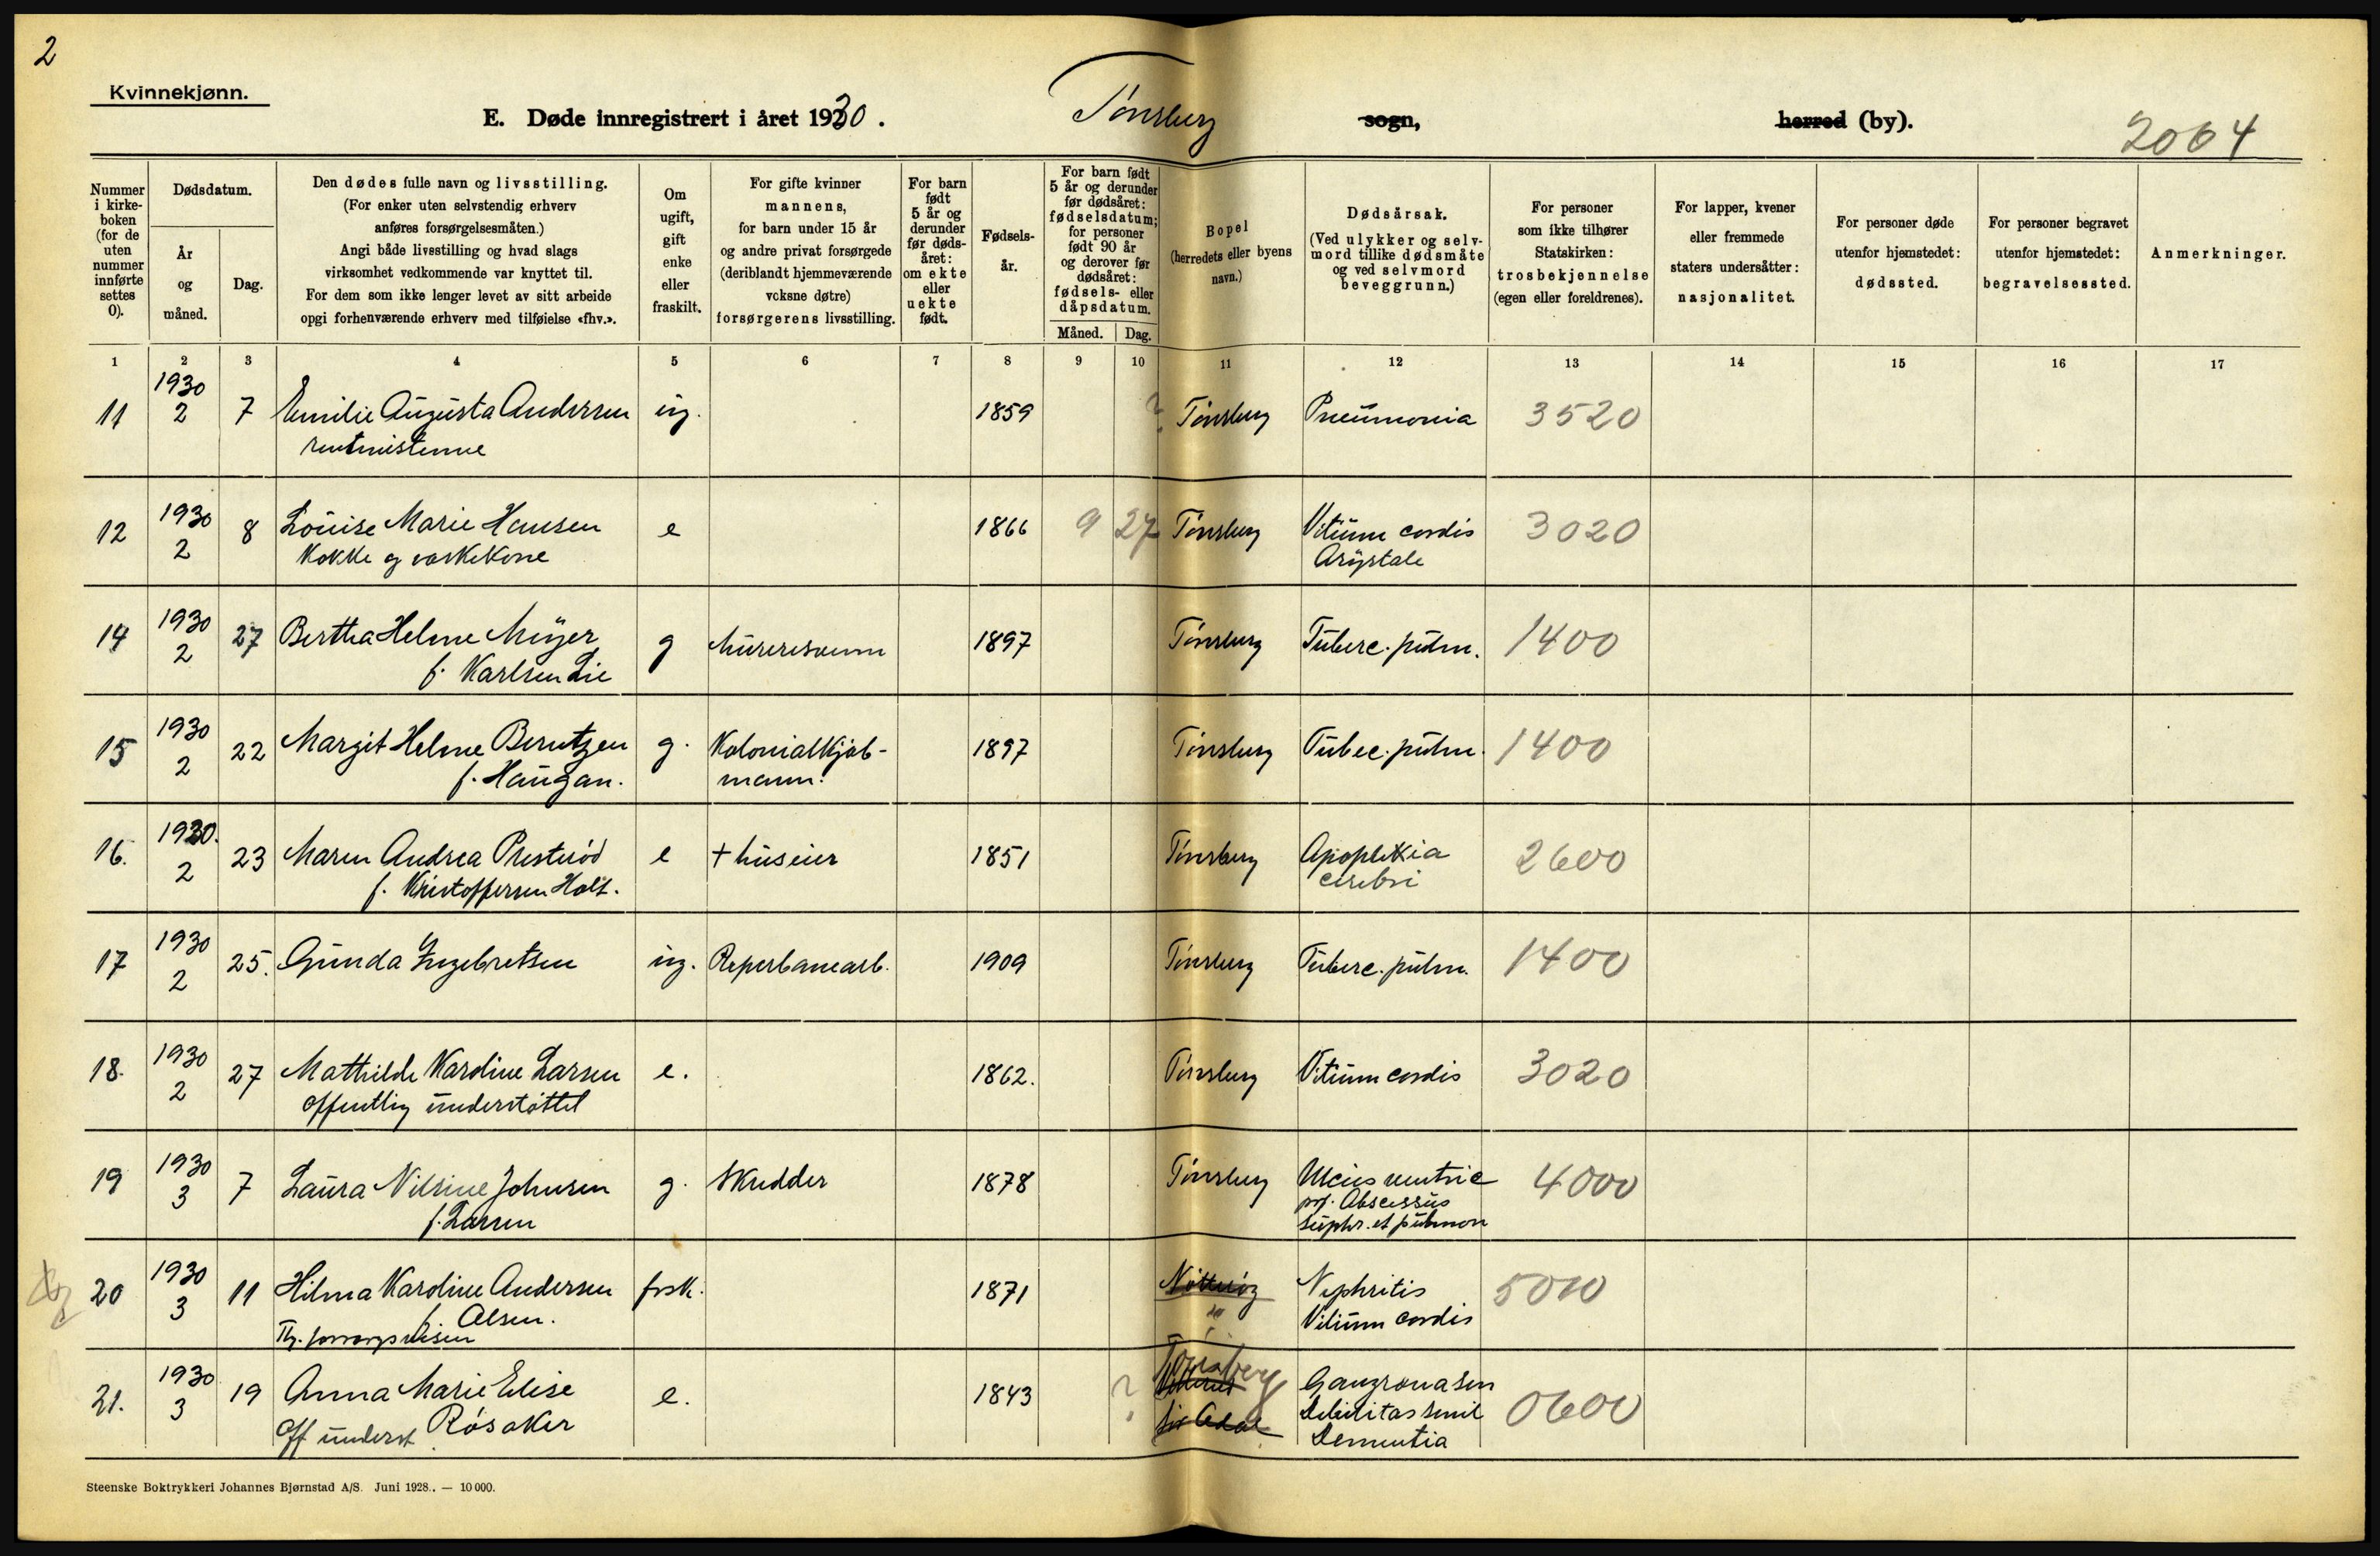 2
Kvinnekjønn.
E. Døde innregistrert i året 1930.
Tønsberg
sogn,
herred (by).
2004
Nummer i kirke-boken (for de uten nummer innførte settes 0).
Dødsdatum.
År og måned.
Dag.
Den dødes fulle navn og livsstilling.
(For enker uten selvstendig erhverv
anføres forsørgelsesmåten.)
Angi både livsstilling og hvad slags
virksomhet vedkommende var knyttet til.
For dem som ikke lenger levet av sitt arbeide
opgi forhenværende erhverv med tilføielse «fhv.».
Om ugift, gift enke eller fraskilt.
For gifte kvinner
mannens,
for barn under 15 år
og andre privat forsørgede
(deriblandt hjemmeværende
voksne døtre)
forsørgerens livsstilling.
For barn født 5 år og derunder før døds-året: om ekte eller uekte født.
Fødsels-år.
For barn født
5 år og derunder
før dødsåret:
fødselsdatum;
for personer
født 90 år
og derover før
dødsåret:
fødsels- eller
dåpsdatum.
Måned. Dag.
Bopel
(herredets eller byens
navn.)
Dødsårsak.
(Ved ulykker og selv-
mord tillike dødsmåte
og ved selvmord
beveggrunn.)
For personer
som ikke tilhører
Statskirken:
trosbekjennelse
(egen eller foreldrenes).
For lapper, kvener
eller fremmede
staters undersåtter:
nasjonalitet.
For personer døde
utenfor hjemstedet:
dødssted.
For personer begravet
utenfor hjemstedet:
begravelsessted.
Anmerkninger.
1 2 3 4 5 6 7 8 9 10 11 12 13 14 15 16 17
11 1930 2 7 Emilie Augusta Andersen ug. 1859 ? Tønsberg Pneumonia 3520
rentenistinne
12 1930 2 8 Louise Marie Hansen e 1866 9 27 Tønsberg Vitium cordis 3020
Kokke og vaskekone Asystole
14 1930 2 27 Bertha Helene Meyer g Murersvenn 1897 Tønsberg Tuberc. pulm. 1400
f. Karlsen Lie
15 1930 2 22 Margit Helene Berntzen g. Kolonialkjøb- 1897 Tønsberg Tubec. pulm. 1400
f. Haugan. mann.
16. 1930. 2 23 Maren Andrea Presterød e + huseier 1851 Tønsberg Apoplexia 2600
f. Kristoffersen Holt. cerebri
17 1930 2 25. Gunda Ingebretsen ug. Reperbanearb. 1909 Tønsberg Tuberc. pulm. 1400
18. 1930 2 27 Mathilde Karoline Larsen e. 1862. Tønsberg Vitium cordis 3020
offentlig understøttet
19 1930 3 7 Laura Nilsine Johnsen g. Skredder 1878 Tønsberg Ulcus ventric 4000
f. Larsen
Abscessus
et pulmon
20 1930 3 11 Hilma Karoline Andersen frsk. 1871 Nøtterøy Nephritis 5010
f. Olsen. Vitium cordis
Tbg. forsorgsvesen
21. 1930 3 19 Anna Marie Elise e. 1843 ? Tønsberg Gangræna sen 0600
Off underst Røsaker Debilitas senil
Dementia
Steenske Boktrykkeri Johannes Bjørnstad A/S. Juni 1928.. — 10 000.